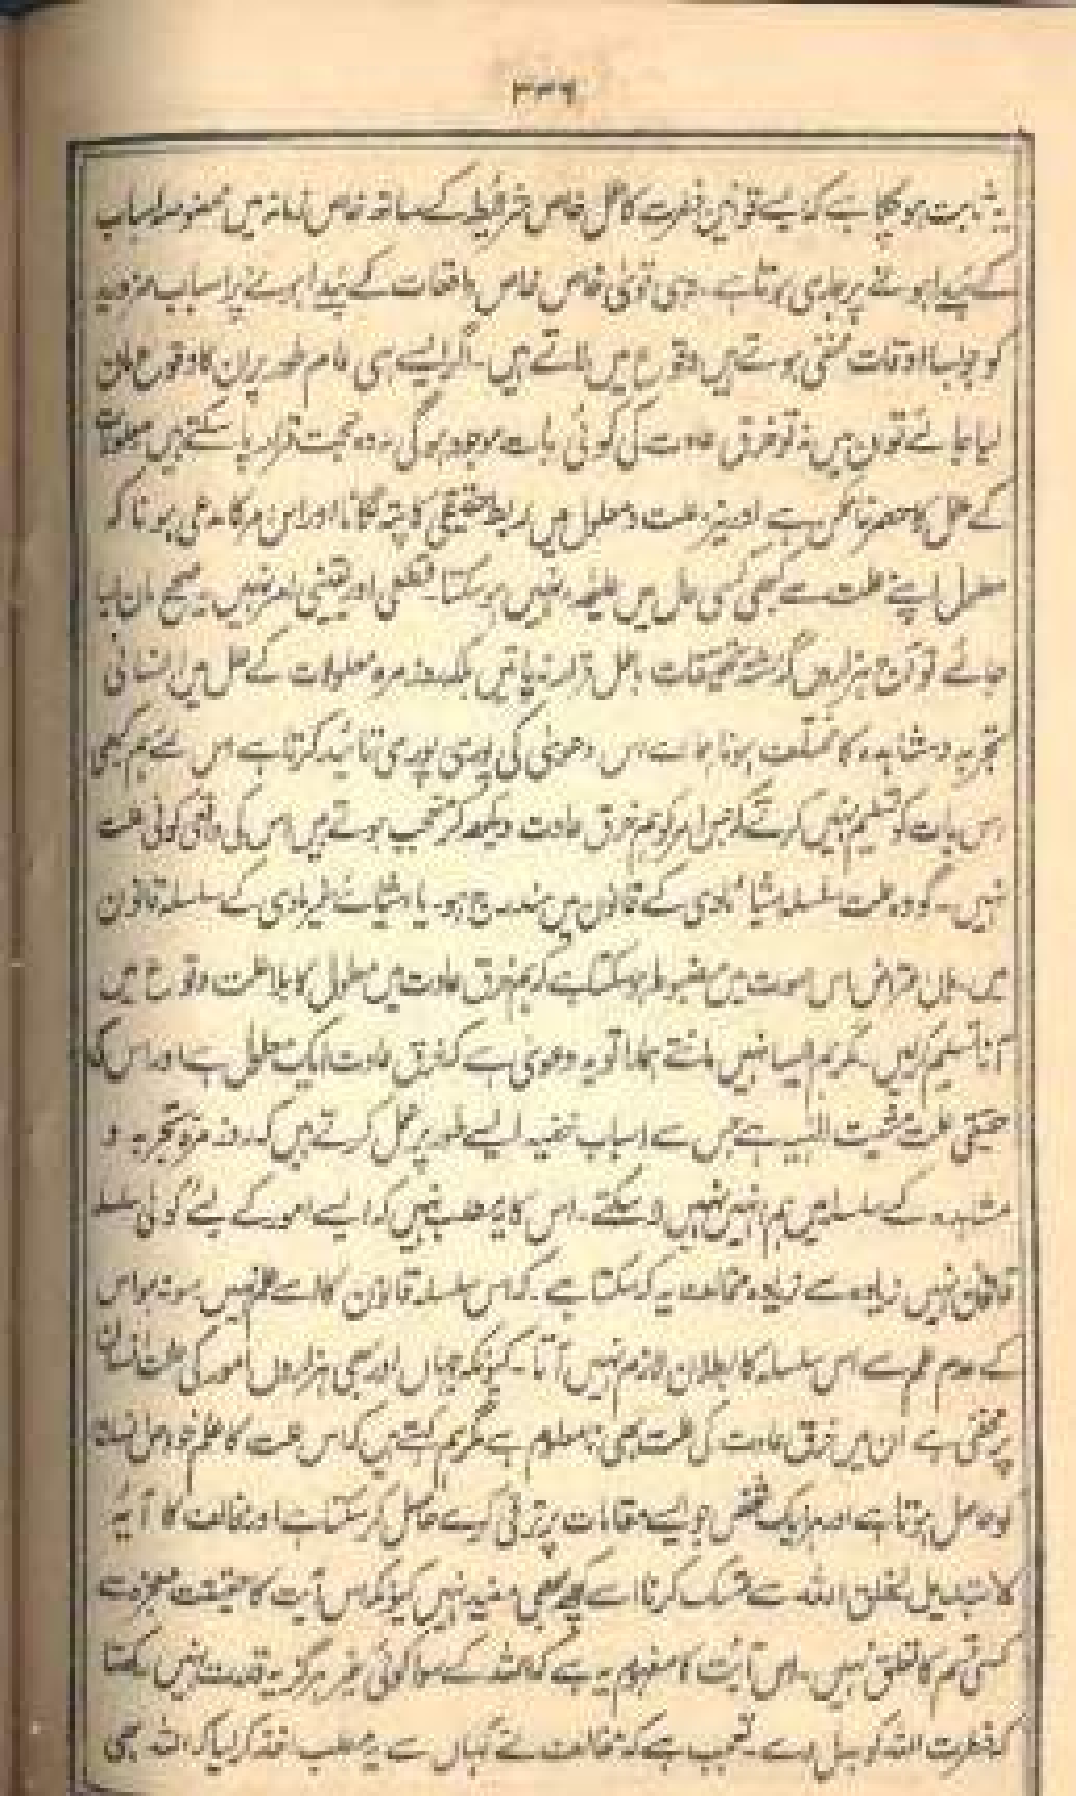 ۳۳۶
یہ ثابت ہو چکا ہے کہ ایسے قوانین فطرت کا عمل خاص شرائط کے ساتھ خاص زمانہ میں مخصوصہ اسباب
کے پیدا ہونے پر جاری ہوتا ہے۔ وہی قویٰ خاص خاص واقعات کے پیدا ہونے پر اسباب
کو جو بسا اوقات مخفی ہوتے ہیں وقوع میں لاتے ہیں۔ اگر ایسے ہی عام طور پر ان کا وقوع مان
لیا جائے تو ان میں نہ تو خرق عادت کی کوئی بات موجود ہوگی نہ وہ حجت قرار پا سکتے ہیں معلولات
کے علل کا حصر ناممکن ہے اور نیز علت و معلول میں ربط حقیقی کا پتہ لگانا اور اس امر کا مدعی ہونا کہ
معلول اپنے علت سے کبھی کسی حال میں علیحدہ نہیں ہو سکتا۔ قطعی اور یقینی امر نہیں یہ صحیح مان لیا
جائے تو آج ہزاروں گذشتہ تحقیقات باطل قرار نہ پاتیں بلکہ روز مرہ معلولات کے علل میں انسانی
تجربہ و مشاہدہ کا مختلف ہونا ہمارے اس دعویٰ کی پوری پوری تائید کرتا ہے اس لئے ہم کبھی
اس بات کو تسلیم نہیں کرتے کہ جس امر کو ہم خرق عادت دیکھ کر متعجب ہوتے ہیں اس کی واقعی کوئی علت
نہیں۔ گو وہ علت سلسلہ اشیائے مادی کے قانون میں مندرج ہو۔ یا اشیائے غیر مادی کے سلسلہ قانون
میں۔ ہاں اعتراض اس صورت میں مضبوط ہو سکتا ہے کہ ہم خرق عادت میں معلول کا بلا علت وقوع میں
آنا تسلیم کر لیں۔ مگر ہم ایسا نہیں مانتے ہمارا تو یہ دعویٰ ہے کہ خرق عادت ایک معلول ہے اور اس کی
حقیقی علت مشیت الٰہیہ ہے جس سے اسباب خفیہ ایسے طور پر عمل کرتے ہیں کہ روز مرہ تجربہ و
مشاہدہ کے سلسلہ میں ہم انہیں نہیں لا سکتے۔ اس کا یہ مطلب نہیں کہ ایسے امور کے لئے کوئی سلسلہ
قانون نہیں زیادہ سے زیادہ مخالف یہ کہہ سکتا ہے۔ کہ اس سلسلہ قانون کا اسے علم نہیں سو نہ ہو اس
کے عدم علم سے اس سلسلہ کا بطلان لازم نہیں آتا۔ کیونکہ جہاں اور بھی ہزاروں امور کی علت انسان
پر مخفی ہے ان میں خرق عادت کی علت بھی نامعلوم ہے مگر ہم کہتے ہیں کہ اس علت کا علم
کو حاصل ہوتا ہے اور ہر ایک شخص جو ایسے مقامات پر ترقی کرے حاصل کر سکتا ہے اور مخالف کا آیہ
لا تبدیل لخلق اللہ سے تمسک کرنا اسے کچھ بھی مفید نہیں کیونکہ اس آیت کا حقیقت معجزہ سے
کسی قسم کا تعلق نہیں۔ اس آیت کا مفہوم یہ ہے کہ اللہ کے سوا کوئی غیر ہرگز یہ قدرت نہیں رکھتا
کہ فطرت اللہ کو بدل دے۔ تعجب ہے کہ مخالف نے کہاں سے یہ مطلب اخذ کر لیا کہ اللہ بھی